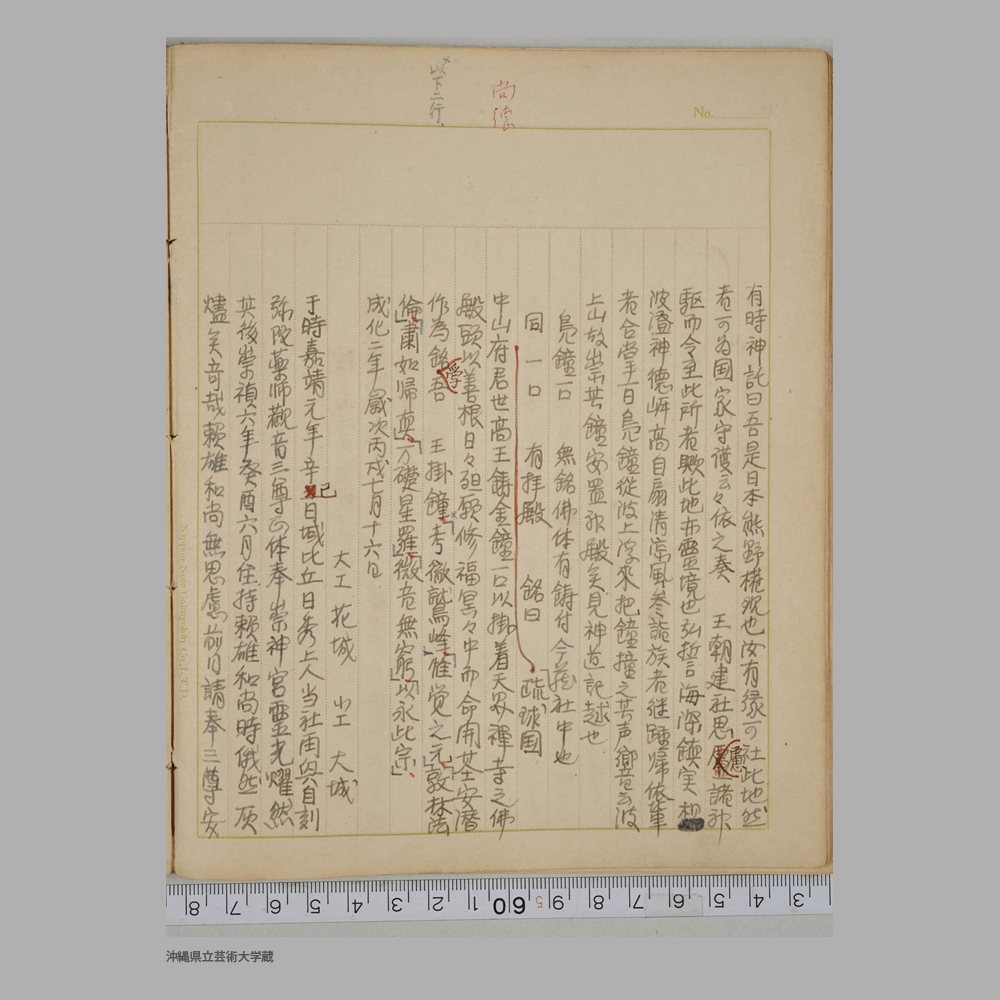 No.
尚
徳
以下二行、
有時神託曰吾是日本熊野権現也汝有縁可社此地然
者可為国家守護云々依之奏 王朝建社思慮諸神
駆而令至此所者歟此地亦霊境也弘誓言海深鎮実相
波澄神徳岼高自扇清涼風参詣族者継踵帰依輩
者合掌 一日鳧鐘從波上浮來把鐘撞之其声響云波
上山故崇其鐘安置神殿矣見神道記趣也
鳧鐘一口 無銘佛体有鋳付今蔵社中也
同一口 有拝殿 銘曰 琉球国
中山府君世高王鋳金鐘一口以掛着天界禅寺之佛
殿頭以善根日々祖願修福冥々中而命開基安潜
作為銘 吾 王掛鐘考徹鷲峰惟覚之元敦林法
倫肅如帰奠万礎星羅微音無窮以永此宗
成化二年歳次丙戌七月十六日
大工 花城 小工 大城
于時嘉靖元年辛巳日域比丘日秀上人当社再興自刻
弥陀薬師觀音三尊正体奉崇神宮霊光耀然
其後崇禎六年癸酉六月住持頼雄和尚時俄然灰
燼矣奇哉頼雄和尚無思慮前月請奉三尊安
8 7 6 5 4 3 2 1 60 5 9 8 7 6 5 4 3
沖縄県立芸術大学蔵